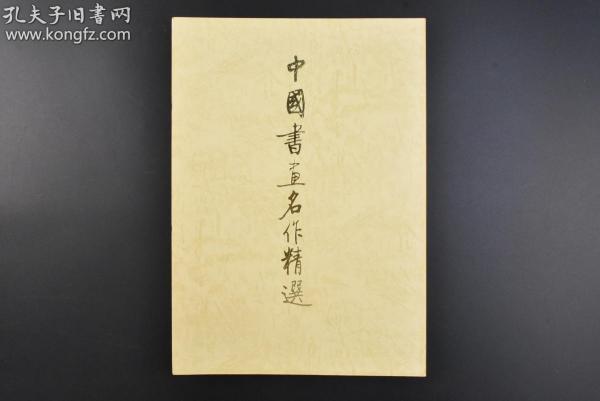 孔夫子旧書网
www.kongfz.com
中國書画名作精選